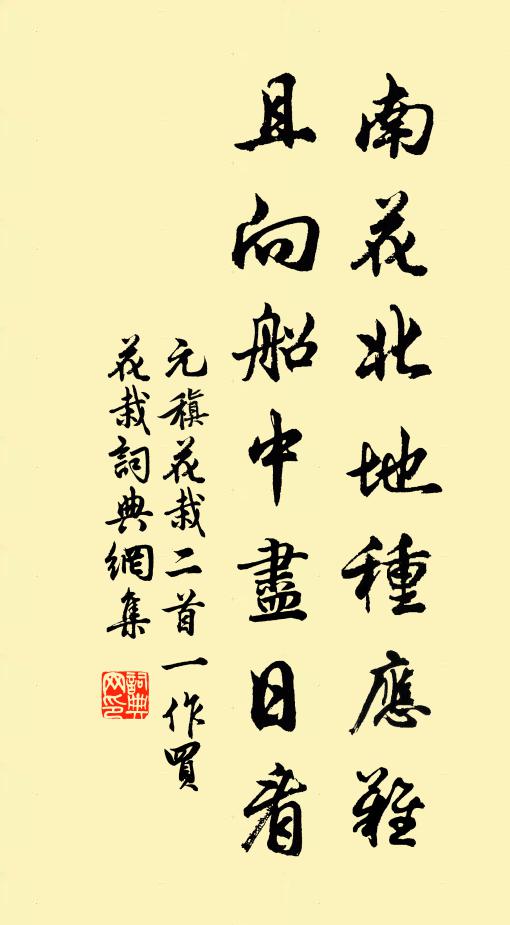 南花北地種應難
且向船中盡日看
元稹花栽二首一作買
花栽詞典網集
詞典網印